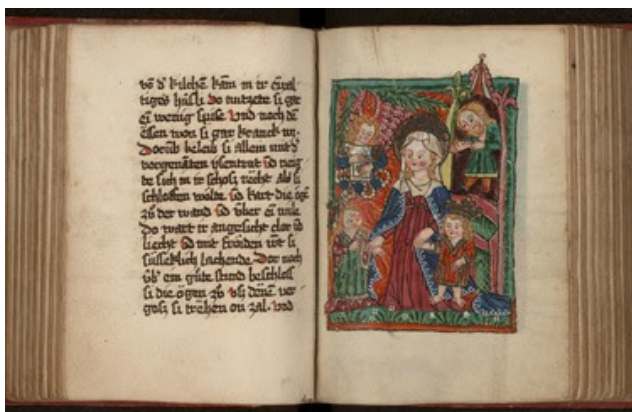 võ d᷑ kilchẽ kam in ir cʋͤal
tiges hüsli do nutzete si gar
eī wenig spise Vnd nach dē
essen won si gar kranck wz
Dorūb beleib si allein mit d᷑
vorgenātẽ ysentrut vnd neig
te sich in ir schosz rechte als si
schloffen wölte vnd kart die ögē
zů der wand vnd v́ber eī wile
Do wart ir angesicht clor vnd
liecht vnd mit fröiden wz si
süsseklich lachende Dor noch
v́b ein gůte stund beschloss
si die ögen zů vsz denē ver
gosz si trehen on zal Vnd